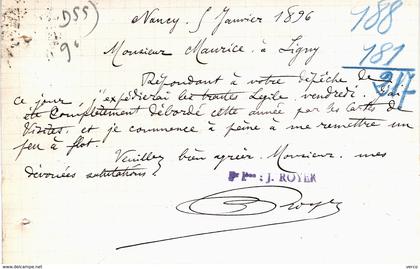 D55)
9c
188
181
217
Nancy, 5 Janvier 1896
Monsieur Maurice, à Ligny
Répondant à votre dépêche de
ce jour, j'expédierai les toutes vendredi. J'ai
été complètement débordé cette année par les cartes de
Visites, et je commence à peine à me remettre un
peu à flot.
Veuillez bien agréer, Monsieur, mes
dévouées salutations.
: J. ROYER
Royer